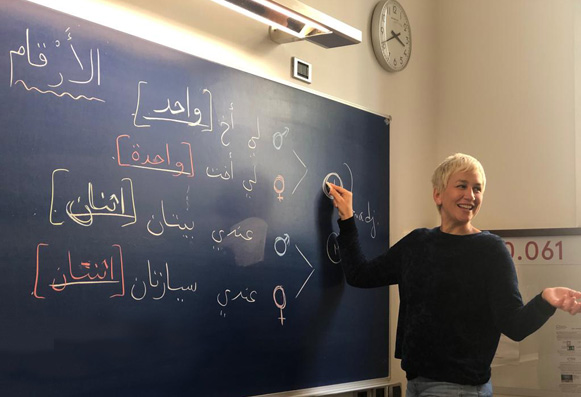 الأَرْقَام
لي أخ [واحد]
لي أخت [واحدة]
عندي بيتان [اثنان]
عندي سيارتان [اثنتان]
adj.
0.061